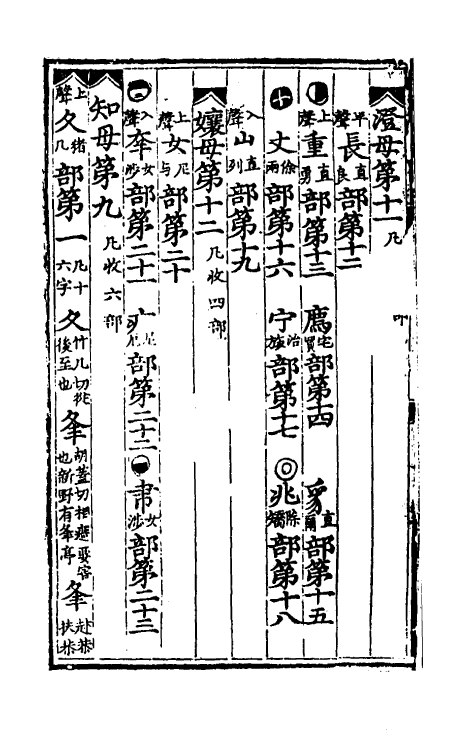 澄母第十一凡
平聲長直良部第十二
上聲重直勇部第十三 廌宅買部第十四 豸直爾部第十五
丈徐兩部第十六 宁治旅部第十七 兆除矯部第十八
入聲屮直列部第十九
孃母第十二凡收四部
上聲女尼与部第二十
入聲㚔女涉部第二十一 疒尼厄部第二十二 𦘒女涉部第二十三
知母第九凡收六部
上聲夂猪几部第一凡十六字 夂竹几切從後至也 夆胡蓋切相遮要害也新野有夆亭 夆扶恭